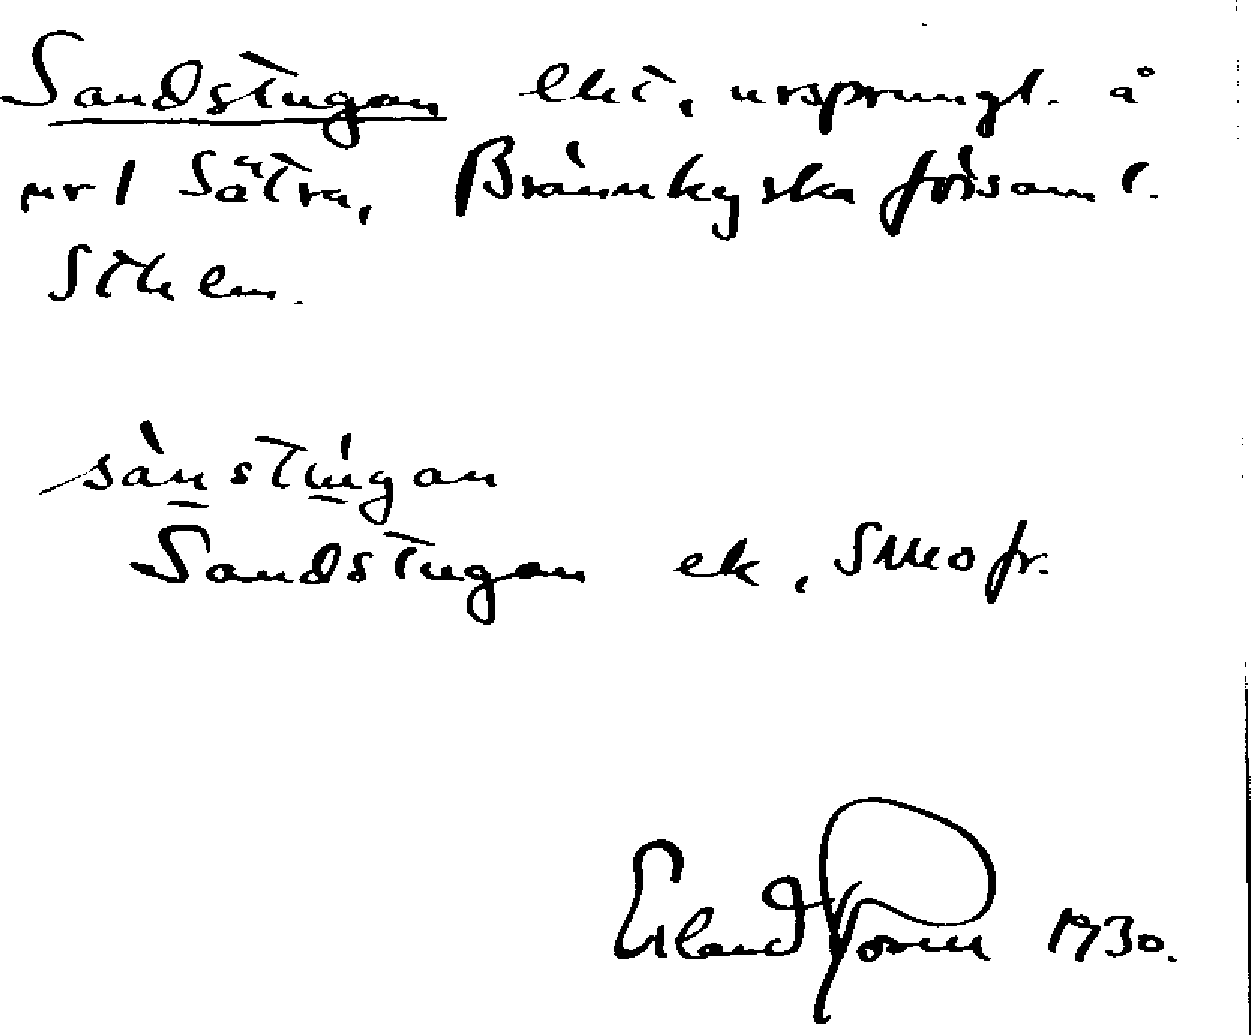 Sandstugan lht, ursprungl. å
nr 1 Sätra, Brännkyrka församl.
Sthlm.
sànstúgan
Sandstugan ek, Smofr.
Erland Rosell 1930.